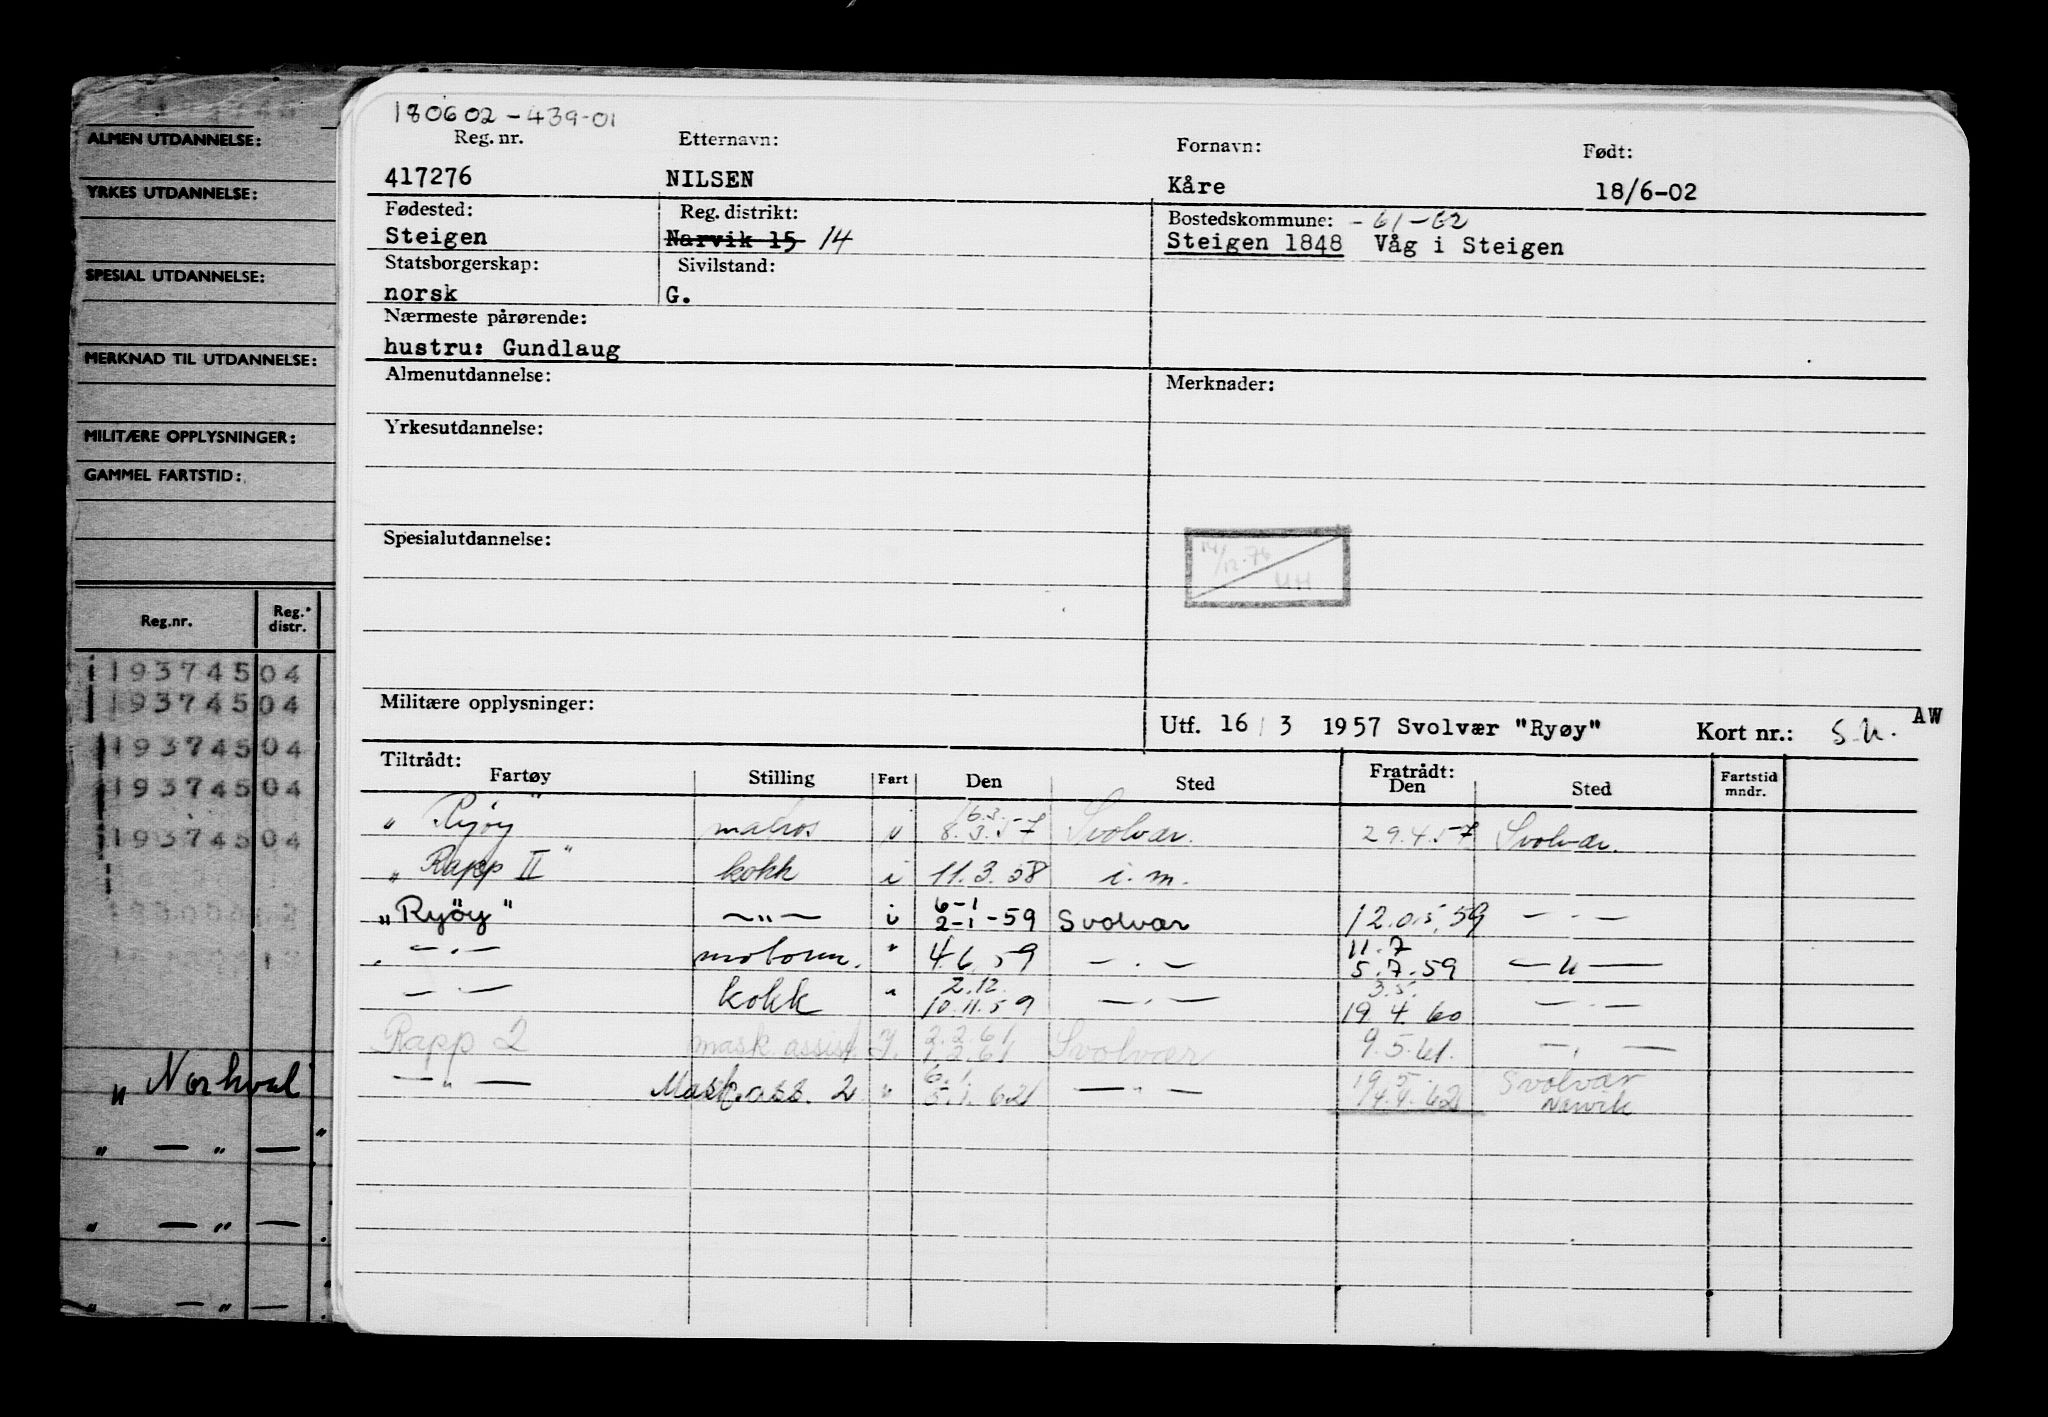 ALMEN UTDANNELSE:
YRKES UTDANNELSE:
SPESIAL UTDANNELSE:
MERKNAD TIL UTDANNELSE:
MILITÆRE OPPLYSNINGER:
GAMMEL FARTSTID:
Reg.nr. Reg. distr.
193745 04
193745 04
193745 04
193745 04
193745 04
„ Norhval
„ — „ —
„ — „ —
„ — „ —
180602-439-01
Reg. nr. Etternavn: Fornavn: Født:
417276 NILSEN Kåre 18/6-02
Fødested: Reg. distrikt: Bostedskommune: -61-62
Steigen Narvik 15 14 Steigen 1848 Våg i Steigen
Statsborgerskap: Sivilstand:
norsk G.
Nærmeste pårørende:
hustru: Gundlaug
Almenutdannelse: Merknader:
Yrkesutdannelse:
Spesialutdannelse:
14/12-76
Militære opplysninger:
Utf. 16/3 1957 Svolvær "Ryøy" Kort nr.: AW
Tiltrådt: Fratrådt:
Fartøy Stilling Fart Den Sted Den Sted Fartstid mndr.
16.3.
„ Ryøy" matros 8.3.57 Svolvær. 29.4.57 Svolvær.
„ Rapp II" kokk i 11.3.58 i.m.
6-1
„Ryöy" —„— i 2-1-59 Svolvær 12.05.59 — . —
11.7
— . — " 4.6.59 — . — 5.7.59 —"—
2.12. 3.5.
— . — kokk " 10.11.59 — . — 19.4.60 — . —
2.2.61
Rapp 2 mask.assist. 1.2.61 Svolvær 9.5.61. — . —
6.1. 19.5. Svolvær
— " — Mask.ass. 2 " 5.1.62 — " — 14.4.62 Narvik